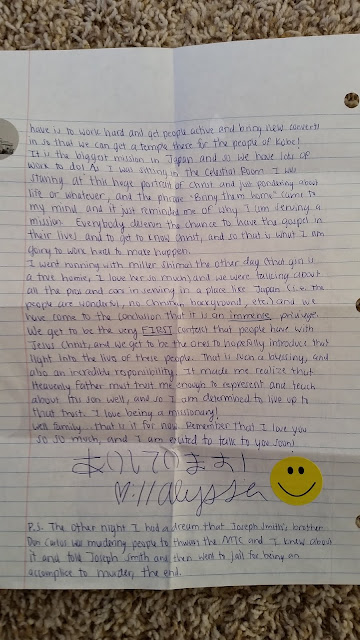 have is to work hard and get people active and bring new converts
in so that we can get a temple there for the people of Kobe!
It is the biggest mission in Japan and so we have lots of
work to do! As I was sitting in the Celestial Room I was
staring at this huge portrait of Christ and just pondering about
life or whatever, and the phrase "Bring them home" came to
my mind and it just reminded me of why I am serving a
mission. Everybody deserves the chance to have the gospel in
their lives and to get to know Christ, and so that is what I am
going to work hard to make happen.
I went running with Miller Shimai the other day (that girl is
a true homie, I love her so much) and we were talking about
all the pros and cons in serving in a place like Japan (i.e. the
people are wonderful, no Christian background, etc.) and we
have came to the conclusion that it is an immense privilege.
We get to be the very FIRST contact that people have with
Jesus Christ, and we get to be the ones to hopefully introduce that
light into the lives of these people. That is such a blessing, and
also an incredible responsibility. It made me realize that
Heavenly Father must trust me enough to represent and teach
about His son well, and so I am determined to live up to
that trust. I love being a missionary!
Well family, that is it for now. Remember that I love you
so so so much, and I am excited to talk to you soon!
あいしています!
♡://alyssa
P.S. The other night I had a dream that Joseph Smith's brother
Don Carlos was murdering people to thwart the MTC and I knew about
it and told Joseph Smith and then went to jail for being an
accomplice to murder, the end.